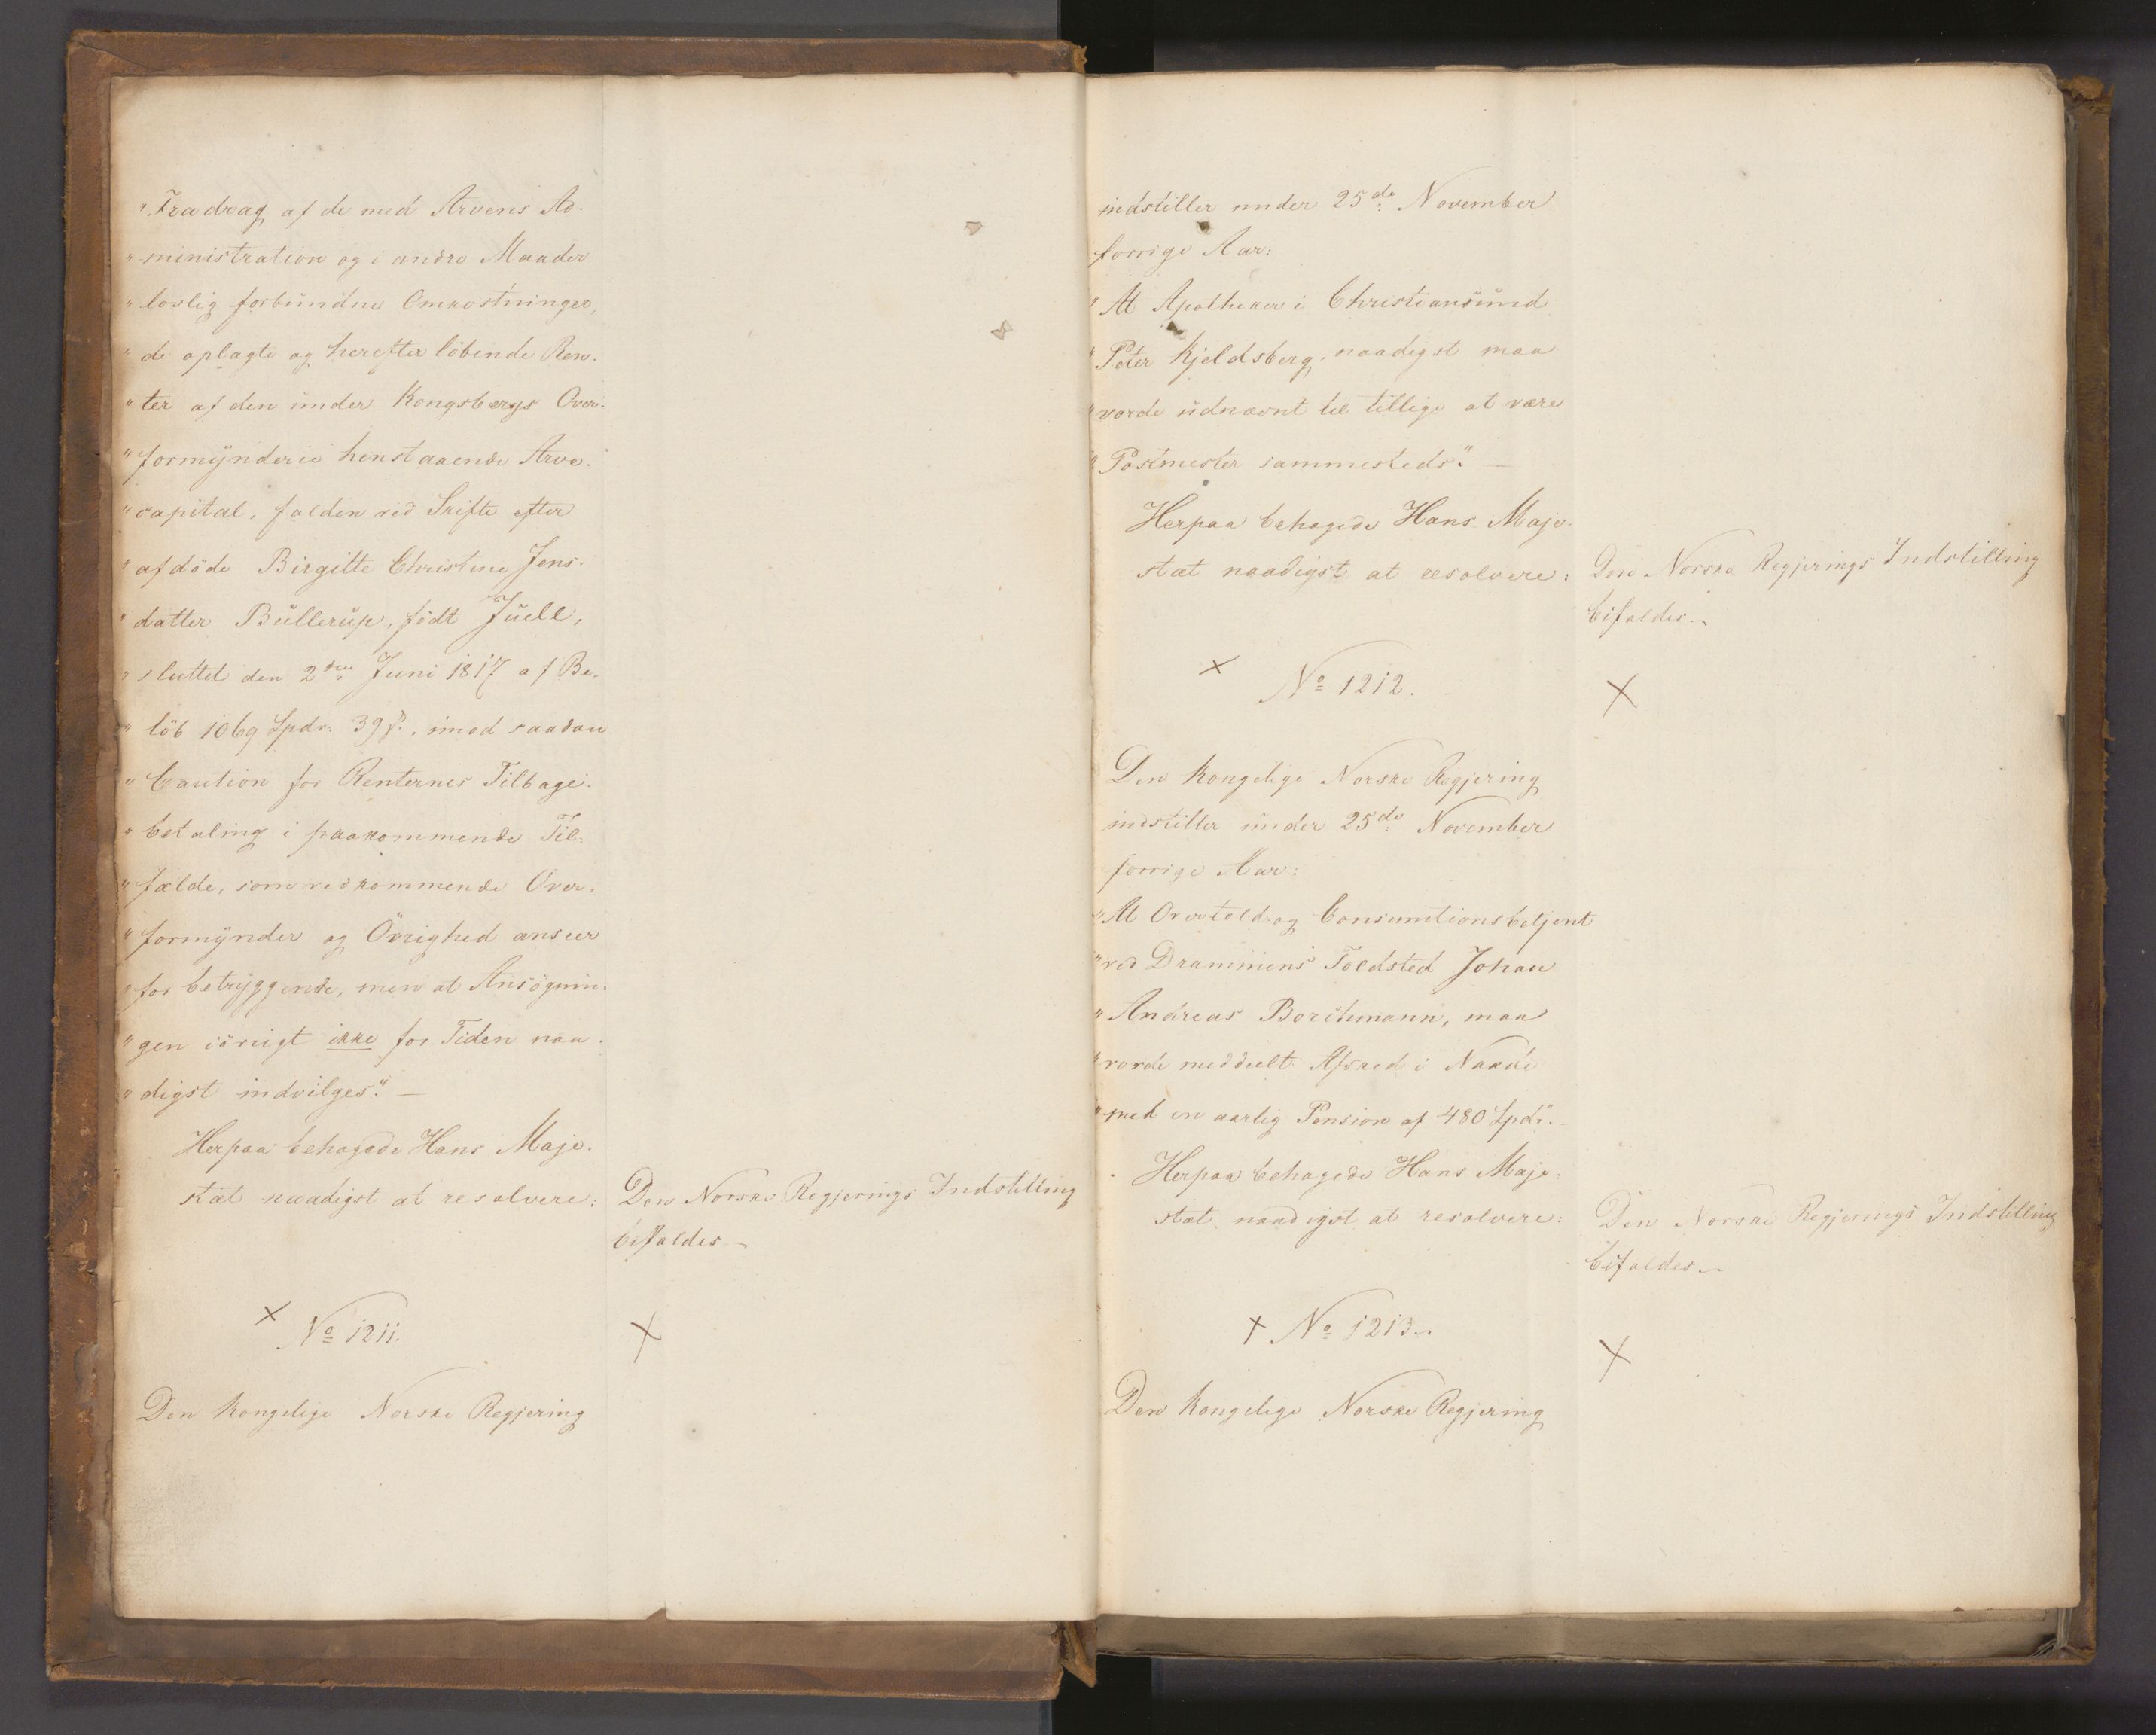 "Fradrag af de med Arvens Ad-
"ministration og i andre Maader
"lovlig forbundne Omkostninger,
"de oplagte og herefter löbende Ren-
"ter af den under Kongsbergs Over-
"formynderie henstaaende Arve-
"capital, falden ved Skifte efter
"afdöde Birgitte Christine Jens-
"datter Bullerup, födt Juell,
"sluttet den 2den Juni 1817 af Be-
"löb 1069 Spdr. 39 ß., imod saadan
"Caution for Renternes Tilbage-
"betaling i paakommende Til-
"fælde, som vedkommende Over-
"formynder og Övrighed anseer
"for betryggende, men at Ansögnin-
"gen iövrigt ikke for Tiden naa-
"digst indvilges". —
Herpaa behagede Hans Maje-
stæt naadigst at resolvere:
Den Norske Regjerings Indstilling
bifaldes
× No 1211. ×
Den Kongelige Norske Regjering
indstiller under 25de November
forrige Aar:
"At Apotheker i Christiansund
"Peter Kjeldsberg, naadigst maa
"vorde udnævnt til tillige at være
"Postmester sammesteds". —
Herpaa behagede Hans Maje-
stæt naadigst at resolvere:
Den Norske Regjerings Indstilling
bifaldes
× No 1212. ×
Den Kongelige Norske Regjering
indstiller under 25de November
forrige Aar:
"At Overtold- og Consumtionsbetjent
"ved Drammens Toldsted Johan
"Andreas Borchmann, maa
"vorde meddeelt Afsked i Naade
"med en aarlig Pension af 480 Spdr".
Herpaa behagede Hans Maje-
stæt naadigst at resolvere:
Den Norske Regjerings Indstilling
bifaldes
× No 1213. ×
Den Kongelige Norske Regjering